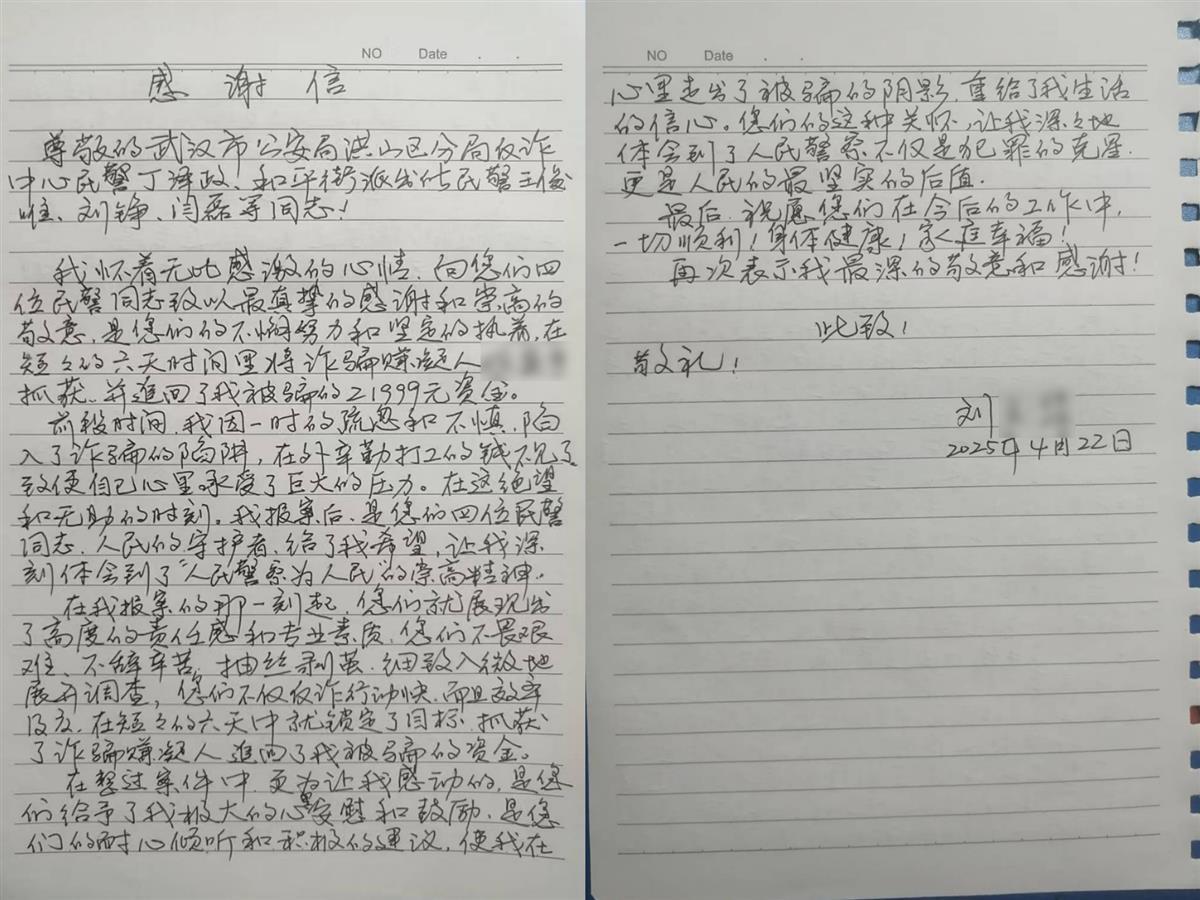 NO Date . .
感谢信
尊敬的武汉市公安局洪山区分局反诈
中心民警丁泽政、和平街派出所民警王俊
唯、刘铮、闫磊等同志!
我怀着无比感激的心情,向您们四
位民警同志致以最真挚的感谢和崇高的
敬意,是您们的不懈努力和坚定的执着,在
短々的六天时间里将诈骗赚凝人
抓获,并追回了我被骗的21999元资金。
前段时间,我因一时的疏忽和不慎,陷
入了诈骗的陷阱,在外辛勤打工的钱不见了
致使自己心里承受了巨大的压力。在这绝望
和无助的时刻。我报案后,是您们四位民警
同志,人民的守护者,给了我希望,让我深
刻体会到了“人民警察为人民”的崇高精神。
在我报案的那一刻起,您们就展现出
了高度的责任感和专业素质,您们不畏艰
难、不辞辛苦,抽丝剥茧,细致入微地
展开调查,您们不仅反诈行动快,而且效率
及应,在短々的六天中就锁定了目标,抓获
了诈骗赚凝人追回了我被骗的资金。
在整过案件中,更为让我感动的,是您
们给予了我极大的心里安慰和鼓励,是您
们的耐心倾听和积极的建议,使我在
NO Date . .
心里走出了被骗的阴影,重给了我生活
的信心。您们的这种关怀,让我深々地
体会到了人民警察不仅是犯罪的克星,
更是人民的最坚实的后盾.
最后,祝愿您们在今后的工作中,
一切顺利!身体健康!家庭幸福!
再次表示我最深的敬意和感谢!
此致!
敬礼!
刘
2025年4月22日